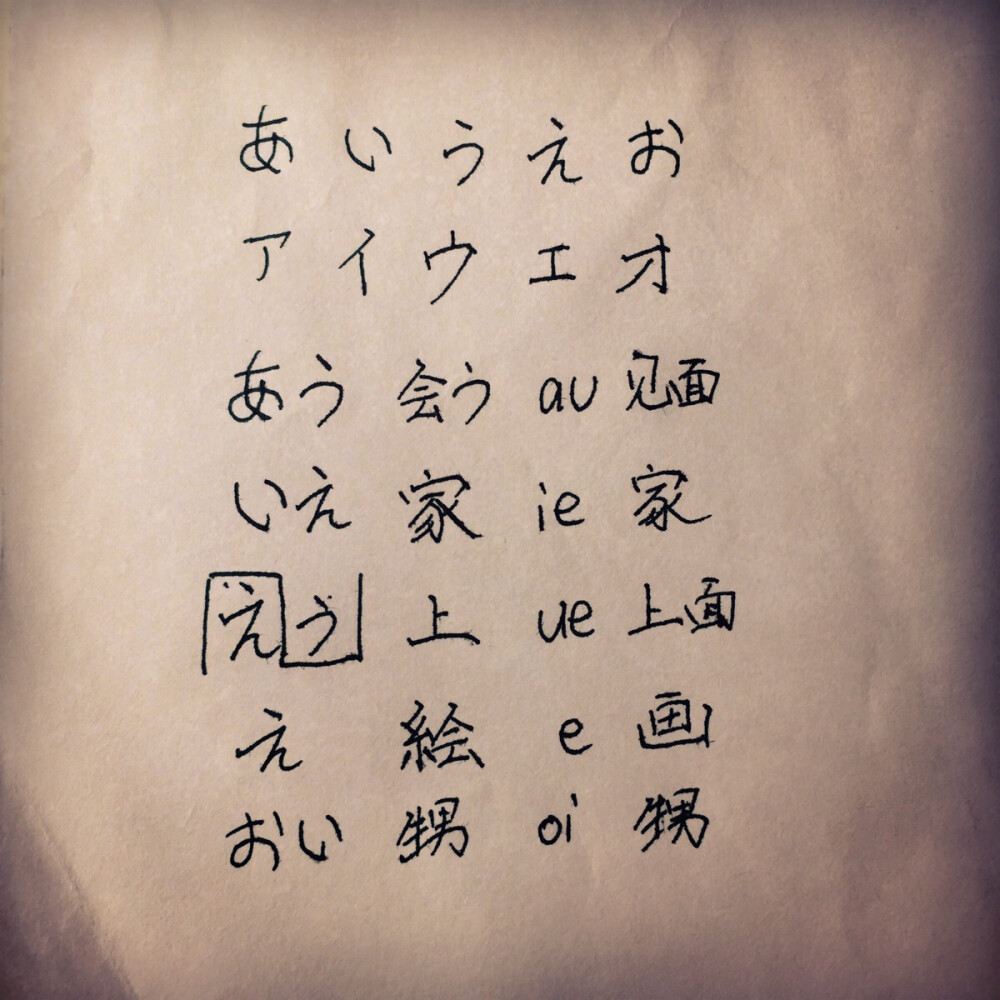 あ い う え お
ア イ ウ エ オ
あう 会う au 见面
いえ 家 ie 家
えう 上 ue 上面
え 絵 e 画
おい 甥 oi 甥